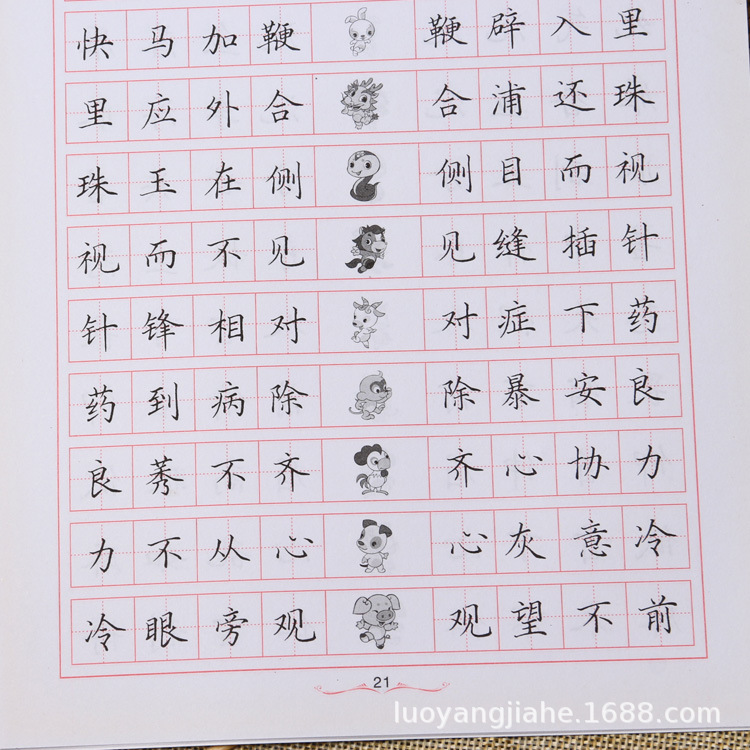 快马加鞭 鞭辟入里
里应外合 合浦还珠
珠玉在侧 侧目而视
视而不见 见缝插针
针锋相对 对症下药
药到病除 除暴安良
良莠不齐 齐心协力
力不从心 心灰意冷
冷眼旁观 观望不前
21
luoyangjiahe.1688.com